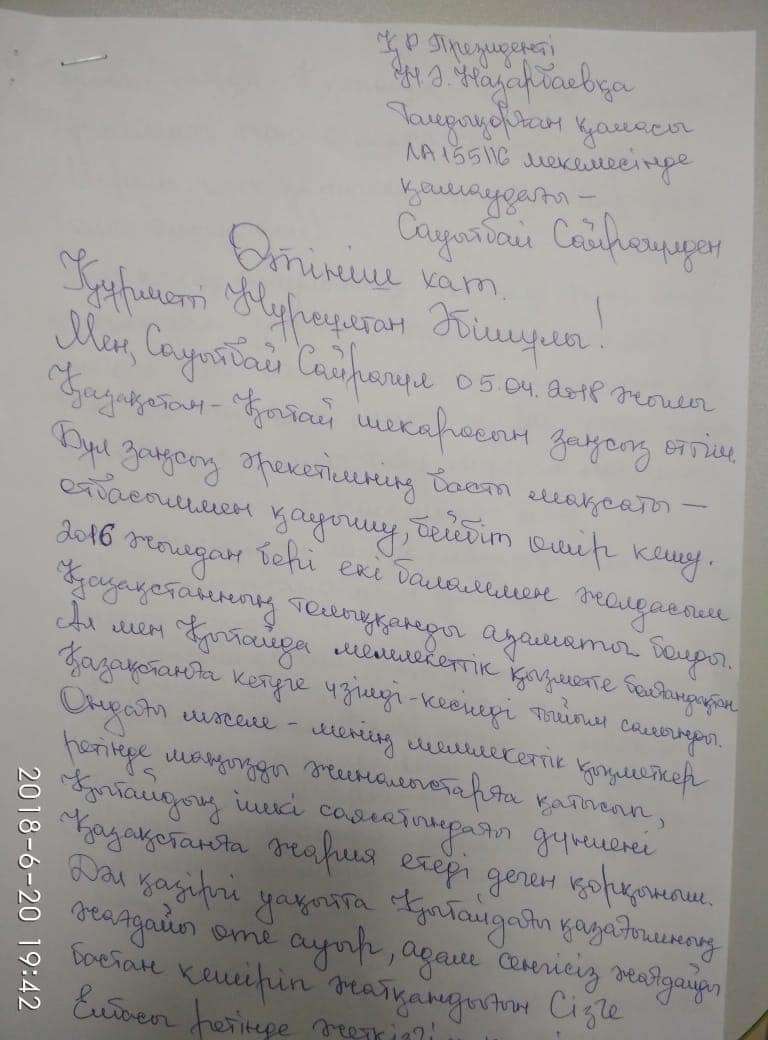 ҚР Президенті
Н.Ә. Назарбаевқа
Талдықорған қаласы
ЛА155/16 мекемесінде
қамаудағы –
Сауытбай Сайрагүлден
Өтініш хат.
Құрметті Нұрсұлтан Әбішұлы!
Мен, Сауытбай Сайрагүл 05.04.2018 жылы
Қазақстан – Қытай шекарасын заңсыз өттім.
Бұл заңсыз әрекетімнің басты мақсаты –
отбасыммен қауышу, бейбіт өмір кешу.
2016 жылдан бері екі баламмен жолдасым
Қазақстанның толыққанды азаматы болды.
Ал мен Қытайда мемлекеттік қызметте болғандықтан
Қазақстанға кетуге үзілді-кесілді тыйым салынды.
Ондағы мәселе – менің мемлекеттік қызметкер
ретінде маңызды жиналыстарға қатысып,
Қытайдың ішкі саясатындағы дүниені
Қазақстанға жария етеді деген қорқыныш.
Дәл қазіргі уақытта Қытайдағы қазағымның
жағдайы өте ауыр, адам сенгісіз жағдайды
бастан кешіріп жатқандығын Сізге
Елбасы ретінде
2018-6-20 19:42